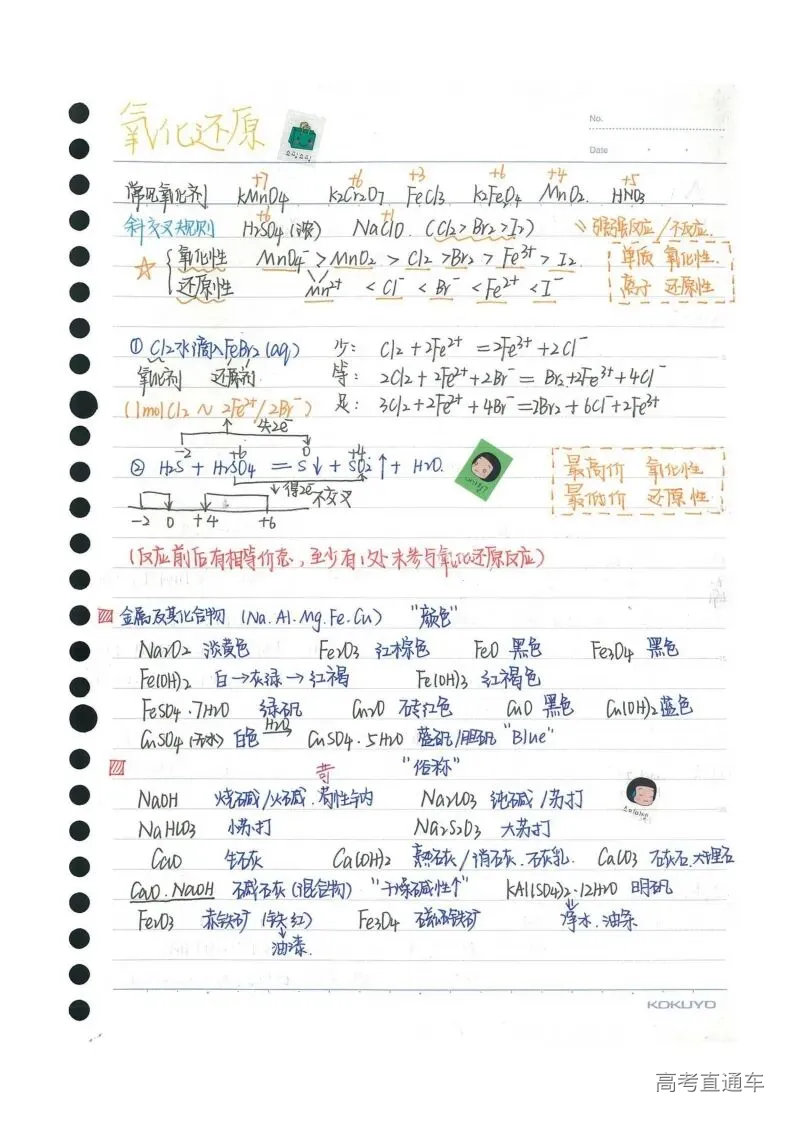 氧化还原
No.
Date
+7 +6 +3 +6 +4 +5
常见氧化剂 KMnO4 K2Cr2O7 FeCl3 K2FeO4 MnO2 HNO3
+6 +1
斜交叉规则 H2SO4(浓) NaClO (Cl2>Br2>I2) 强强反应/不反应
☆ 氧化性 MnO4⁻ > MnO2 > Cl2 > Br2 > Fe³⁺ > I2 单质 氧化性
还原性 Mn²⁺ < Cl⁻ < Br⁻ < Fe²⁺ < I⁻ 离子 还原性
① Cl2水滴入FeBr2(aq) 少: Cl2+2Fe²⁺=2Fe³⁺+2Cl⁻
氧化剂 还原剂 等: 2Cl2+2Fe²⁺+2Br⁻=Br2+2Fe³⁺+4Cl⁻
(1molCl2~2Fe²⁺/2Br⁻) 足: 3Cl2+2Fe²⁺+4Br⁻=2Br2+6Cl⁻+2Fe³⁺
失2e⁻
-2 +6 0 +4
② H2S+H2SO4=S↓+SO2↑+H2O 最高价 氧化性
得2e⁻ 不交叉 最低价 还原性
-2 0 +4 +6
(反应前后有相等价态,至少有1处未参与氧化还原反应)
金属及其化合物(Na.Al.Mg.Fe.Cu) "颜色"
Na2O2 淡黄色 Fe2O3 红棕色 FeO 黑色 Fe3O4 黑色
Fe(OH)2 白→灰绿→红褐 Fe(OH)3 红褐色
FeSO4·7H2O 绿矾 Cu2O 砖红色 CuO 黑色 Cu(OH)2 蓝色
CuSO4(无水) 白色 H2O→ CuSO4·5H2O 蓝矾/胆矾 "Blue"
"俗称"
苛
NaOH 烧碱/火碱.苛性钠 Na2CO3 纯碱/苏打
NaHCO3 小苏打 Na2S2O3 大苏打
CaO 生石灰 Ca(OH)2 熟石灰/消石灰.石灰乳. CaCO3 石灰石.大理石
CaO.NaOH 碱石灰(混合物) "干燥碱性↑" KAl(SO4)2·12H2O 明矾
Fe2O3 赤铁矿(铁红) Fe3O4 磁铁矿 净水.油条
油漆.
KOKUYO
高考直通车